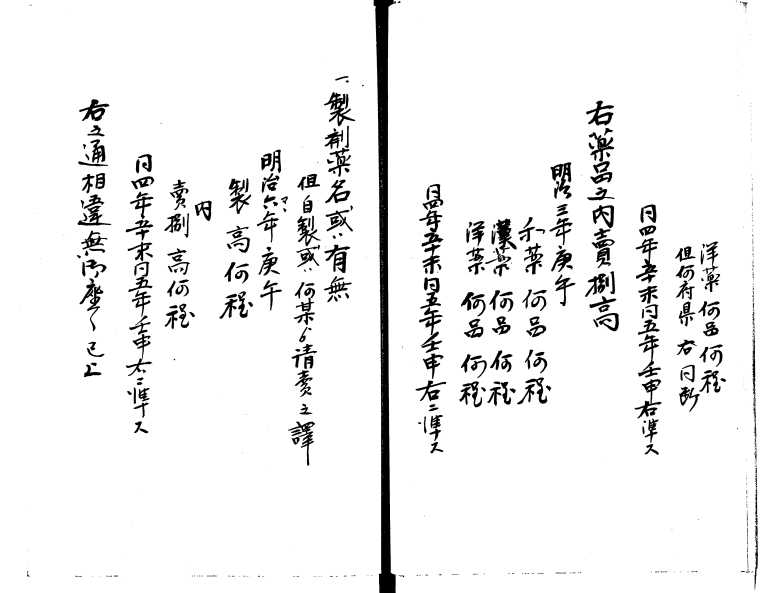 洋薬何品何程
但何府県右同断
同四年辛未同五年壬申右準ス
右薬品之内賣捌高
明治三年庚午
和薬何品何程
漢薬何品何程
洋薬何品何程
同四年辛未同五年壬申右ニ準ス
一、製剤薬名或ハ有無
但自製或ハ何某ゟ請賣之譯
明治六年庚午
マヽ
製高何程
内
賣捌高何程
同四年辛未同五年壬申右ニ準ス
右之通相違無御座候已上